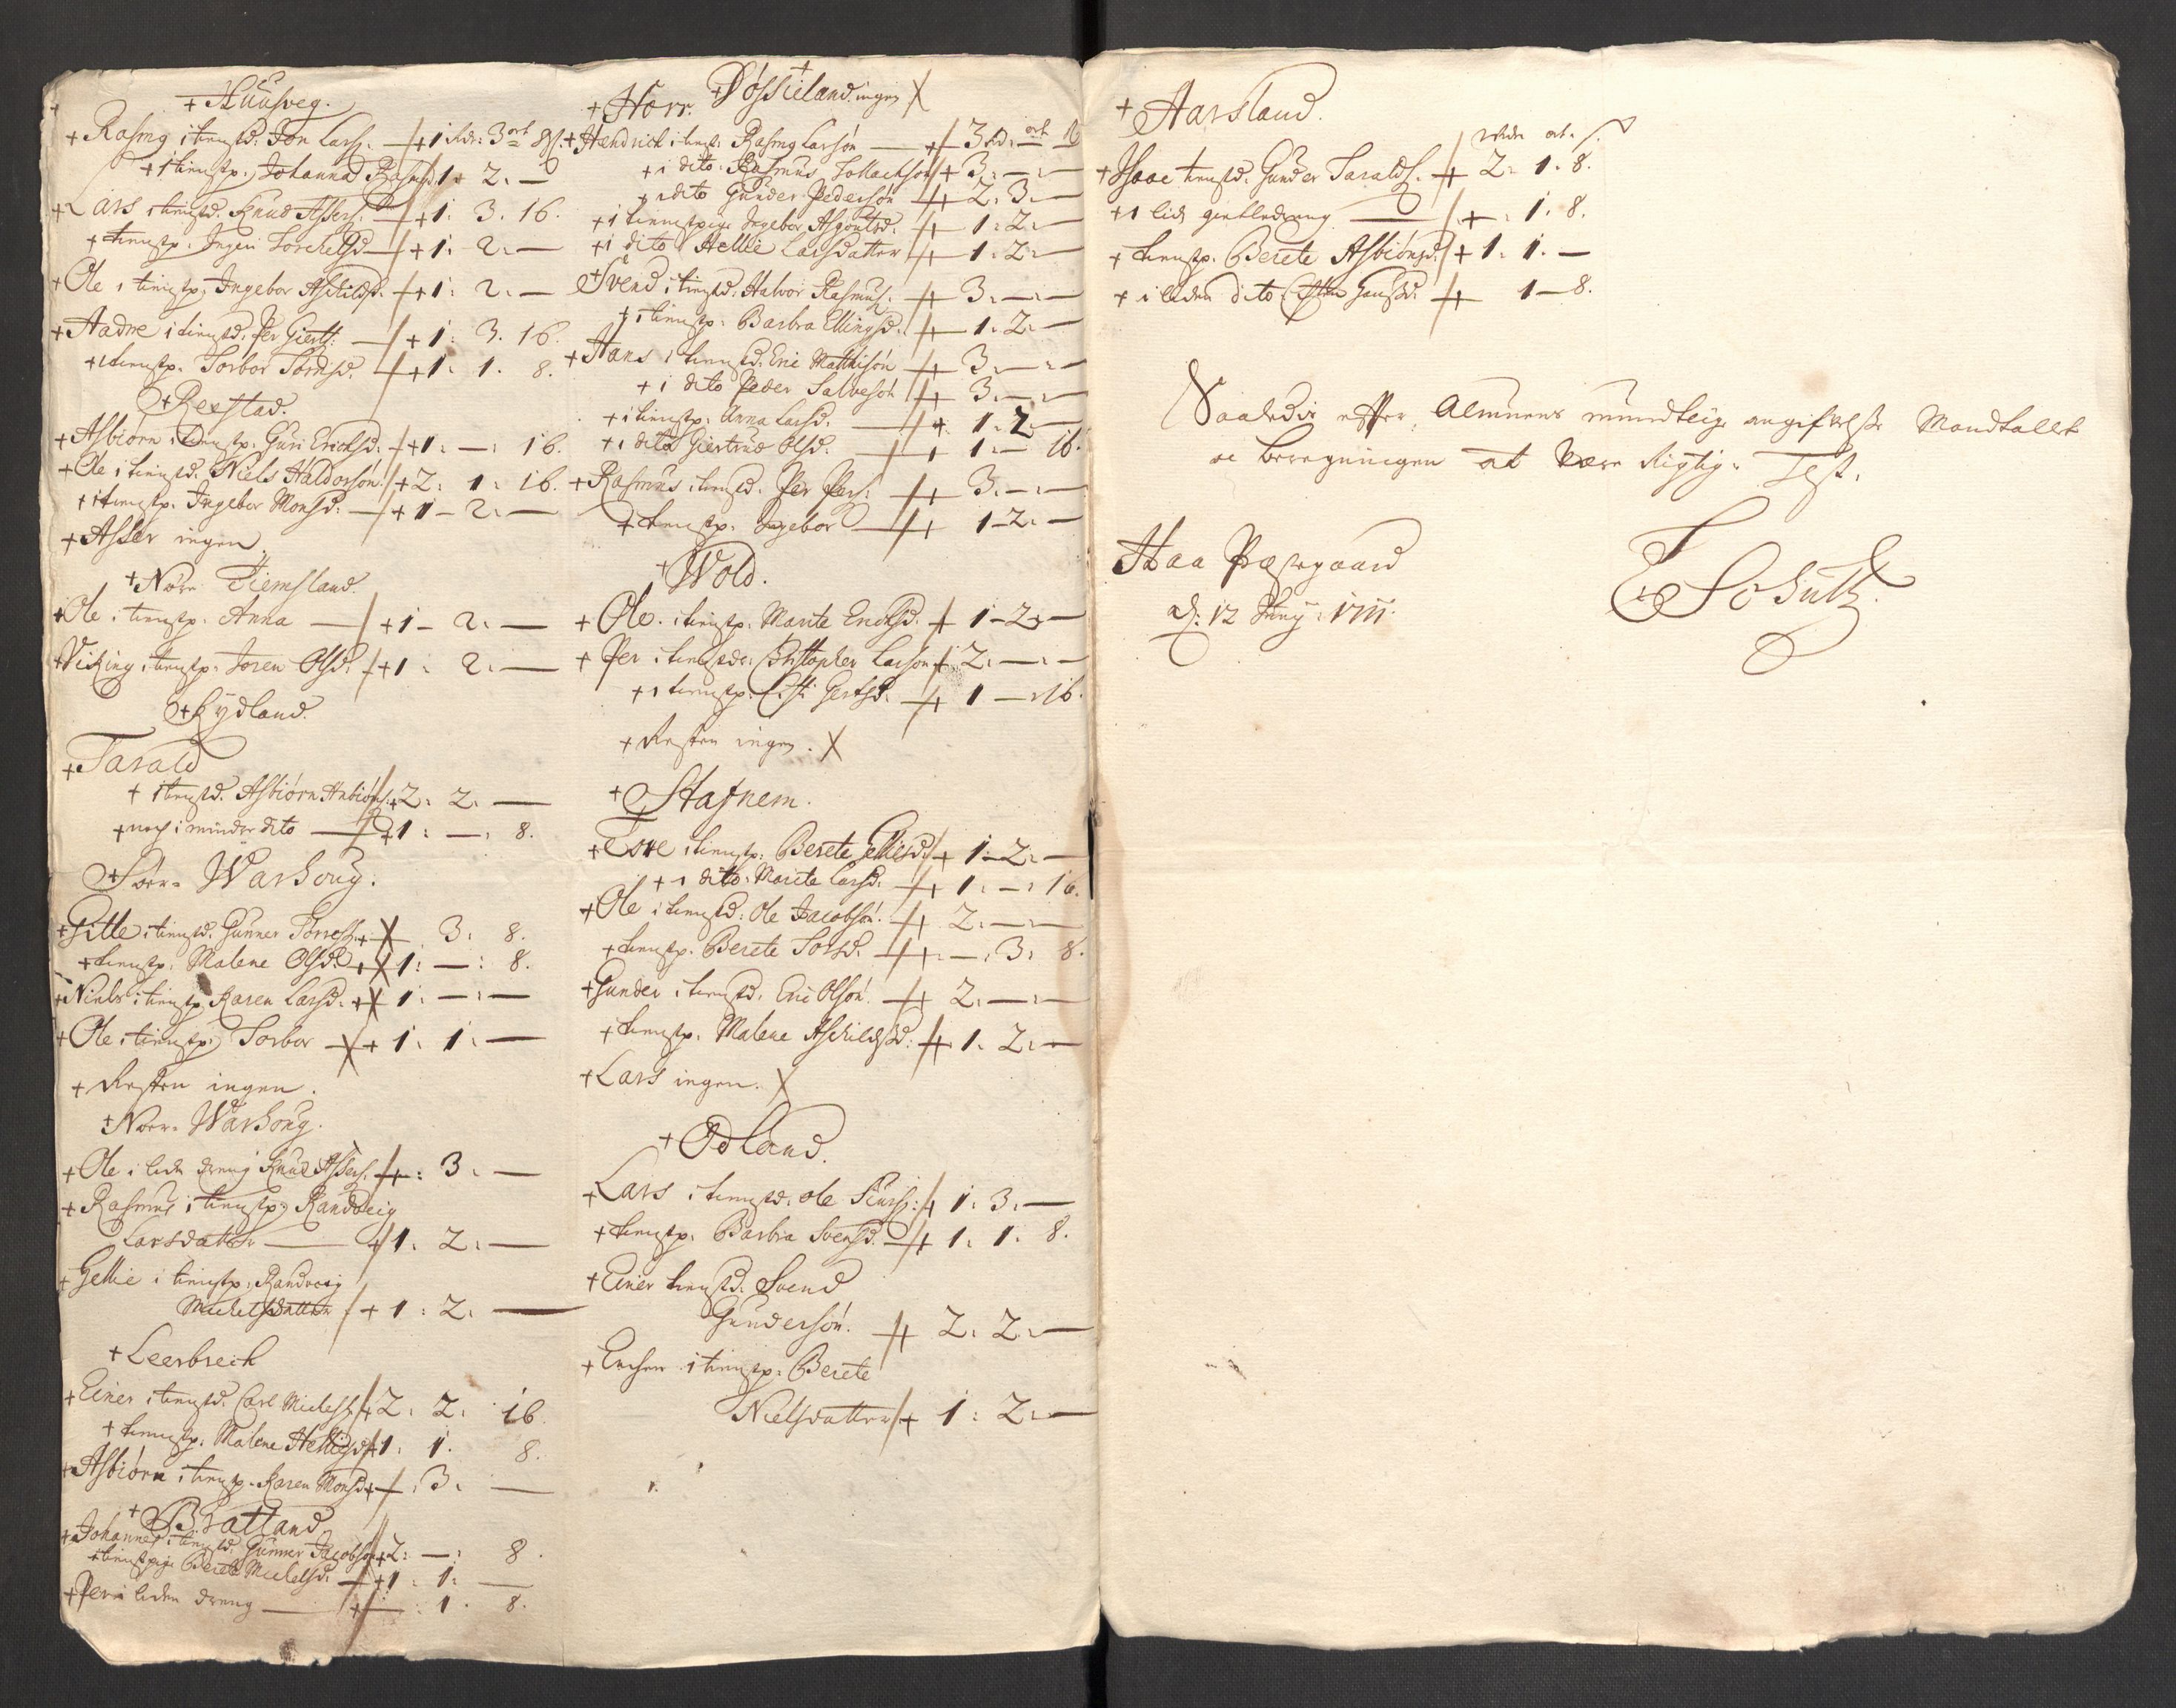 + Huusveg.
+ Rasmg i tienstd: Jon Lars. + 1 Rdr: 3 ort 8 s.
+ 1 tienstp. Johanna Rasmd. 1 + 2. —
+ Lars i tienstd. Knud Assers. + 1. 3. 16.
+ tienstp. Ingeri Torchelsd + 1. 2. —
+ Ole i tienstp. Ingebor Askildsd. + 1: 2. —
+ Aadne i tienstd. Per Giert. + 1: 3. 16.
+ tienstp. Torbor Tordsd. + 1. 1. 8.
+ Reestad.
+ Asbiørn tienstp. Guri Erichsd. + 1: —: 16.
+ Ole i tienstd. Niels Haldorsøn + 2: 1: 16.
+ i tienstp. Ingebor Monsd: + 1 – 2. —
+ Asser ingen.
+ Nore Tiemsland.
+ Ole i tienstp. Anna + 1 – 2. —
+ Vicking i tienstp. Joren Olsd. + 1: 2. —
+ Rydland.
+ Tarald
+ i tienstd. Asbiørn + 2: 2. —
+ noch i minder dito + 1: —: 8.
+ Soer- Warhoug.
+ Gitle i tienstd. Gunner Torres. + 3: 8.
+ tienstp. Malene Olsd. + 1: —: 8.
+ Niels i tienstp. Karen Larsd: + 1: —: —
+ Ole i tienstp. Torbor + 1: 1. —
+ Resten ingen.
+ Noer- Warhoug.
+ Ole i liden dreng Knud Assers. +: 3. —
+ Rasmus i tienstp. Randveig
Larsdatter + 1. 2. —
+ Gellie i tienstp. Randveig
Michelsdatter + 1: 2. —
+ Leerbreck
+ Einer i tienstd. Carl Michels. + 2. 2. 16
+ tienstp. Malene + 1. 1. 8.
+ Asbiørn i tienstp. Karen Monsd. + . 3. —
+ Bratland
+ Johannes i tienstd. Gunner Jacobsøn + 2: —: 8.
+ tienstpige Berete Michelsd. + 1: 1: —
+ Per i liden dreng +: 1. 8.
+ Dossieland ingen X
+ Horr.
+ Hendrich i tienst. Rasmg Larsøn + 3 Rd: — ort 16
+ i dito Rasmus Tollachsøn + 3. —. —
+ i dito Gunder Pedersøn + 2. 3. —
+ i tienstpige Ingebor + 1. 2. —
+ i dito Hellie Larsdatter + 1: 2. —
+ Svend i tienstd. Halvor Rasmus. + 3. —. —
+ i tienstp. Barbra Ellingsd. + 1. 2. —
+ Hans i tienstd. Eric Mathisøn + 3. —. —
+ i dito Peder Salvesøn + 3. —. —
+ i tienstp. Anna Larsd. + 1. 2. —
+ i dito Giertrud Olsd. + 1. — 16.
+ Rasmus i tienstd. Per Pers: + 3. —. —
+ tienstp. Ingebor + 1 – 2. —
+ Wold.
+ Ole. i tienstp. Marite Erichsd. + 1 – 2. —
+ Per i tienstdr. Christopher Larsøn + 2. —. —
+ 1 tienstp. + 1 —: 16.
+ Resten ingen. X
+ Stafnem.
+ Tore i tienstp. Berete + 1 – 2. —
+ 1 dito. Marite Larsd. + 1. —. 16.
+ Ole i tienstd: Ole Jacobsøn. + 2. —. —
+ tienstp. Berete Torsd. + . —. 3. 8.
+ Gunder i tienstd. Eric Olsøn + 2. —. —
+ tienstp. Malene Askildsd. + 1. 2. —
+ Lars ingen. X
+ Odland.
+ Lars i tienstd. Ole Siurs: + 1: 3. —
+ tienstp. Barbra Svensd. + 1. 1. 8.
+ Einer tienstd. Svend
Gundersøn. + 2. 2. —
+ i tienstp. Berete
Nielsdatter + 1: 2. —
+ Aarsland.
Rdr ort s
+ Isaac tienstd. Gunder Taralds. + 2: 1. 8.
+ 1 liden gietledreng + . 1. 8.
+ tienstp. Berete Asbiønsd. + 1. 1. —
+ i liden dito + 1 – 8.
Saaledis effter Almuens mundtlig angifvelse Mandtallet
oc beregningen at være Rigtig. Test.
Haa Præstegaard
d: 12 Juny: 1711.
Schultz.